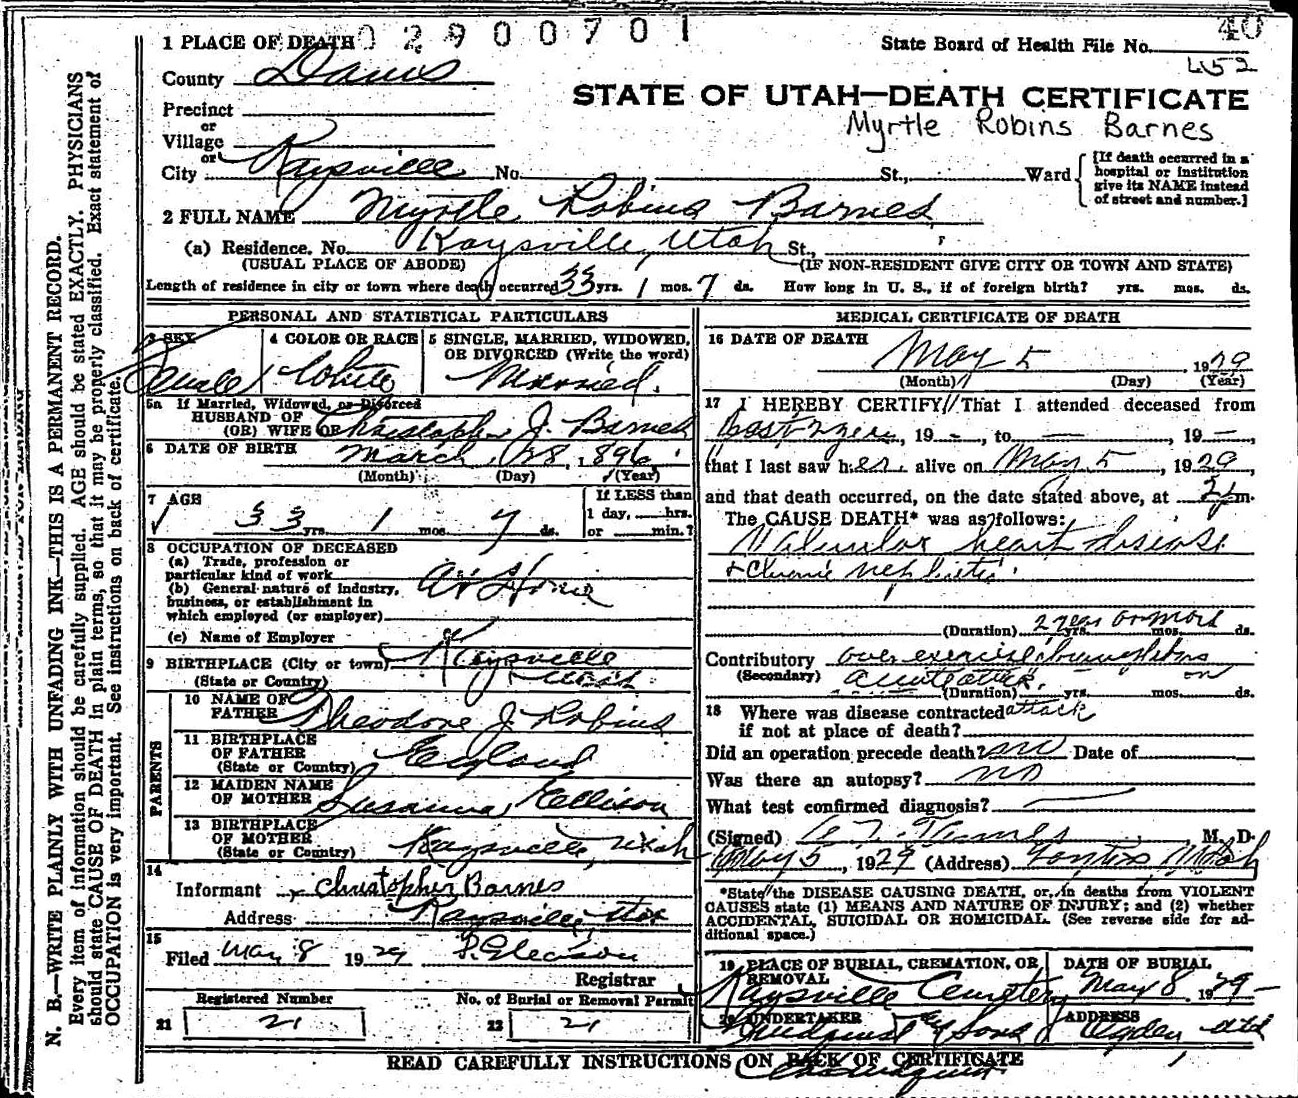 02900701
40
1 PLACE OF DEATH
State Board of Health File No.
452
County Davis
STATE OF UTAH—DEATH CERTIFICATE
Precinct
Myrtle Robins Barnes
or
Village
or
City Kaysville No. St., Ward
[If death occurred in a
hospital or institution
give its NAME instead
of street and number.]
2 FULL NAME Myrtle Robins Barnes
(a) Residence. No. Kaysville, Utah St.,
(USUAL PLACE OF ABODE) (IF NON-RESIDENT GIVE CITY OR TOWN AND STATE)
Length of residence in city or town where death occurred 33 yrs. 1 mos. 7 ds. How long in U. S., if of foreign birth? yrs. mos. ds.
PERSONAL AND STATISTICAL PARTICULARS
3 SEX
Female
4 COLOR OR RACE
White
5 SINGLE, MARRIED, WIDOWED,
OR DIVORCED (Write the word)
Married.
5a If Married, Widowed, or Divorced
HUSBAND OF
(OR) WIFE OF Christopher J. Barnes
6 DATE OF BIRTH March 28, 1896
(Month) (Day) (Year)
7 AGE
33 yrs. 1 mos. 7 ds.
If LESS than
1 day, hrs.
or min.?
8 OCCUPATION OF DECEASED
(a) Trade, profession or
particular kind of work At Home
(b) General nature of industry,
business, or establishment in
which employed (or employer)
(c) Name of Employer
9 BIRTHPLACE (City or town) Kaysville
(State or Country) Utah
PARENTS
10 NAME OF
FATHER Theodore J. Robins
11 BIRTHPLACE
OF FATHER England
(State or Country)
12 MAIDEN NAME
OF MOTHER Susanna Ellison
13 BIRTHPLACE
OF MOTHER Kaysville, Utah
(State or Country)
14
Informant Christopher Barnes
Address Kaysville, Utah
15
Filed May 8 1929 P. Gleason
Registrar
Registered Number
21 21
No. of Burial or Removal Permit
22 21
MEDICAL CERTIFICATE OF DEATH
16 DATE OF DEATH
May 5 1929
(Month) (Day) (Year)
17 I HEREBY CERTIFY, That I attended deceased from
, 19 - , to — , 19 —,
that I last saw her alive on May 5, 1929,
and that death occurred, on the date stated above, at m.
The CAUSE DEATH* was as follows:
Valvular heart disease
& Chronic nephritis.
(Duration) 2 years or more yrs. mos. ds.
Contributory over exercise brought on
(Secondary) acute attack.
(Duration) yrs. mos. ds.
18 Where was disease contracted
if not at place of death?
Did an operation precede death? no Date of
Was there an autopsy? no
What test confirmed diagnosis? —
(Signed) M. D.
May 5, 1929 (Address) Utah
*State the DISEASE CAUSING DEATH, or, in deaths from VIOLENT
CAUSES state (1) MEANS AND NATURE OF INJURY; and (2) whether
ACCIDENTAL, SUICIDAL OR HOMICIDAL. (See reverse side for ad-
ditional space.)
19 PLACE OF BURIAL, CREMATION, OR
REMOVAL
Kaysville Cemetery
DATE OF BURIAL
May 8 1929
20 UNDERTAKER
Lindquist & Sons
ADDRESS
Ogden Utah
READ CAREFULLY INSTRUCTIONS ON BACK OF CERTIFICATE
N. B.—WRITE PLAINLY WITH UNFADING INK—THIS IS A PERMANENT RECORD.
Every item of information should be carefully supplied. AGE should be stated EXACTLY. PHYSICIANS
should state CAUSE OF DEATH in plain terms, so that it may be properly classified. Exact statement of
OCCUPATION is very important. See instructions on back of certificate.